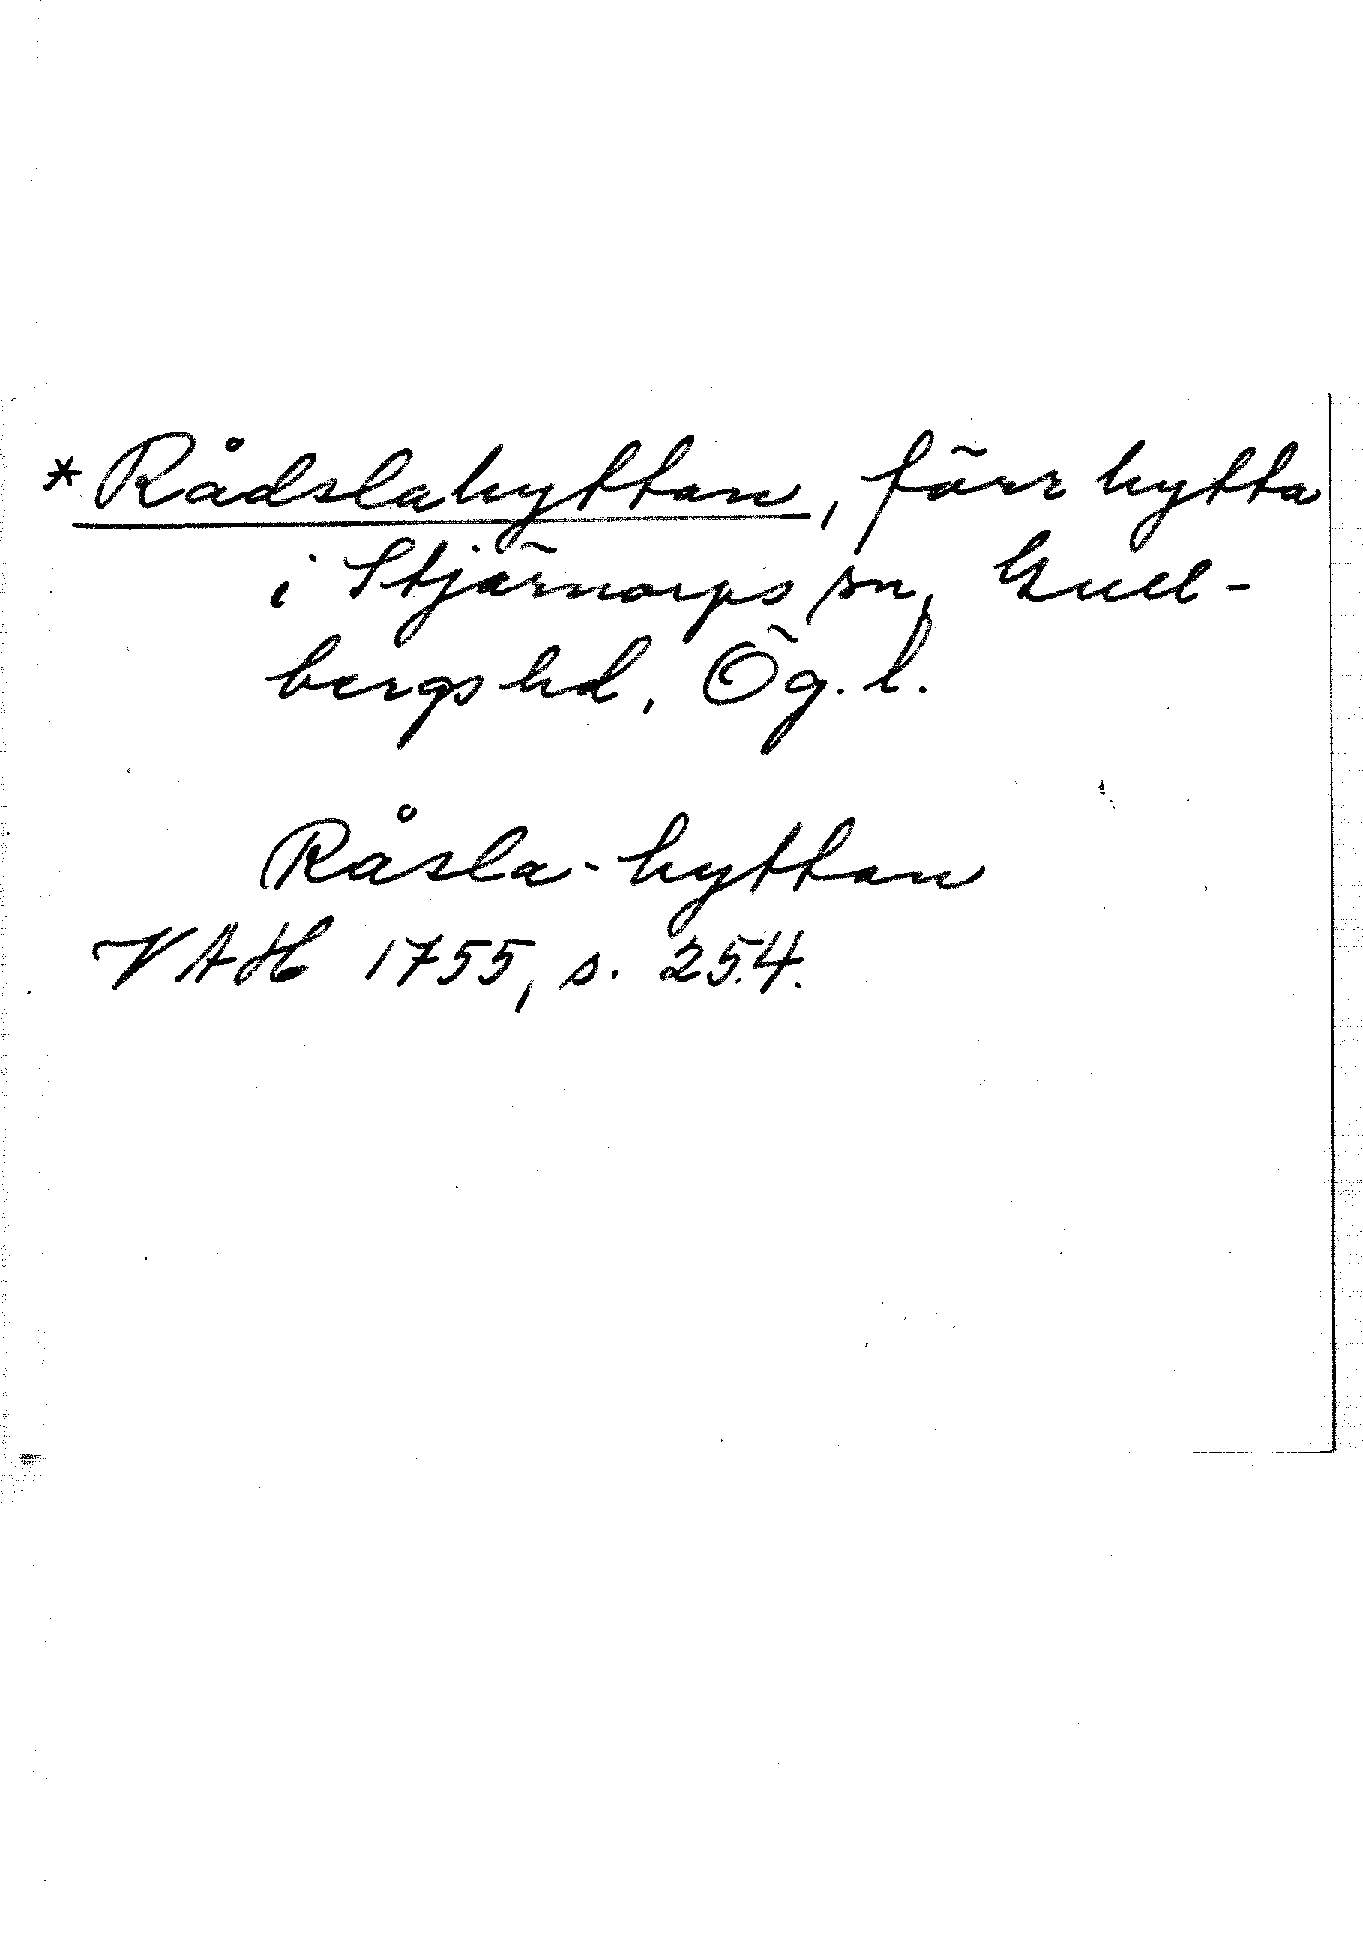 *Rådslahyttan, förr hytta
i Stjärnorps sn, Gull-
bergs hd, Ög. l.
Råsla-hyttan
VAH 1755, s. 254.